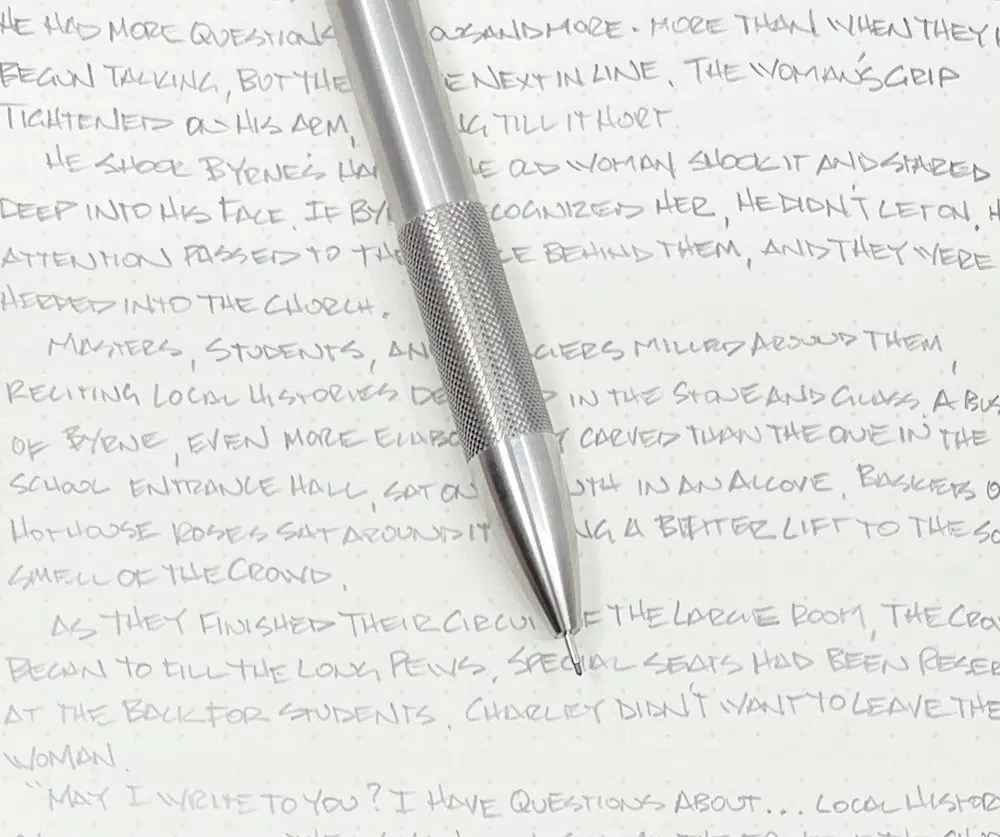 HE HAD MORE QUESTIONS AND MORE. MORE THAN WHEN THEY
BEGUN TALKING, BUT THE NEXT IN LINE. THE WOMAN'S GRIP
TIGHTENED ON HIS ARM, TILL IT HURT
HE SHOOK BYRNE'S OLD WOMAN SHOOK IT AND STARED
DEEP INTO HIS FACE. IF HER, HE DIDN'T LET ON. H
ATTENTION PASSED TO BEHIND THEM, AND THEY WERE
HERDED INTO THE CHURCH.
MASTERS, STUDENTS, MILLED AROUND THEM,
RECITING LOCAL HISTORIES IN THE STONE AND GLASS. A
OF BYRNE, EVEN MORE CARVED THAN THE ONE IN THE
SCHOOL ENTRANCE HALL, SAT ON IN AN ALCOVE. BASKETS
HOTHOUSE ROSES SAT AROUND IT A BITTER LIFT TO THE
SMELL OF THE CROWD.
AS THEY FINISHED THEIR THE LARGE ROOM, THE
BEGAN TO FILL THE LONG PEWS. SPECIAL SEATS HAD BEEN RESER
AT THE BACK FOR STUDENTS. CHARLEY DIDN'T WANT TO LEAVE THE
WOMAN.
"MAY I WRITE TO YOU? I HAVE QUESTIONS ABOUT... LOCAL HISTOR